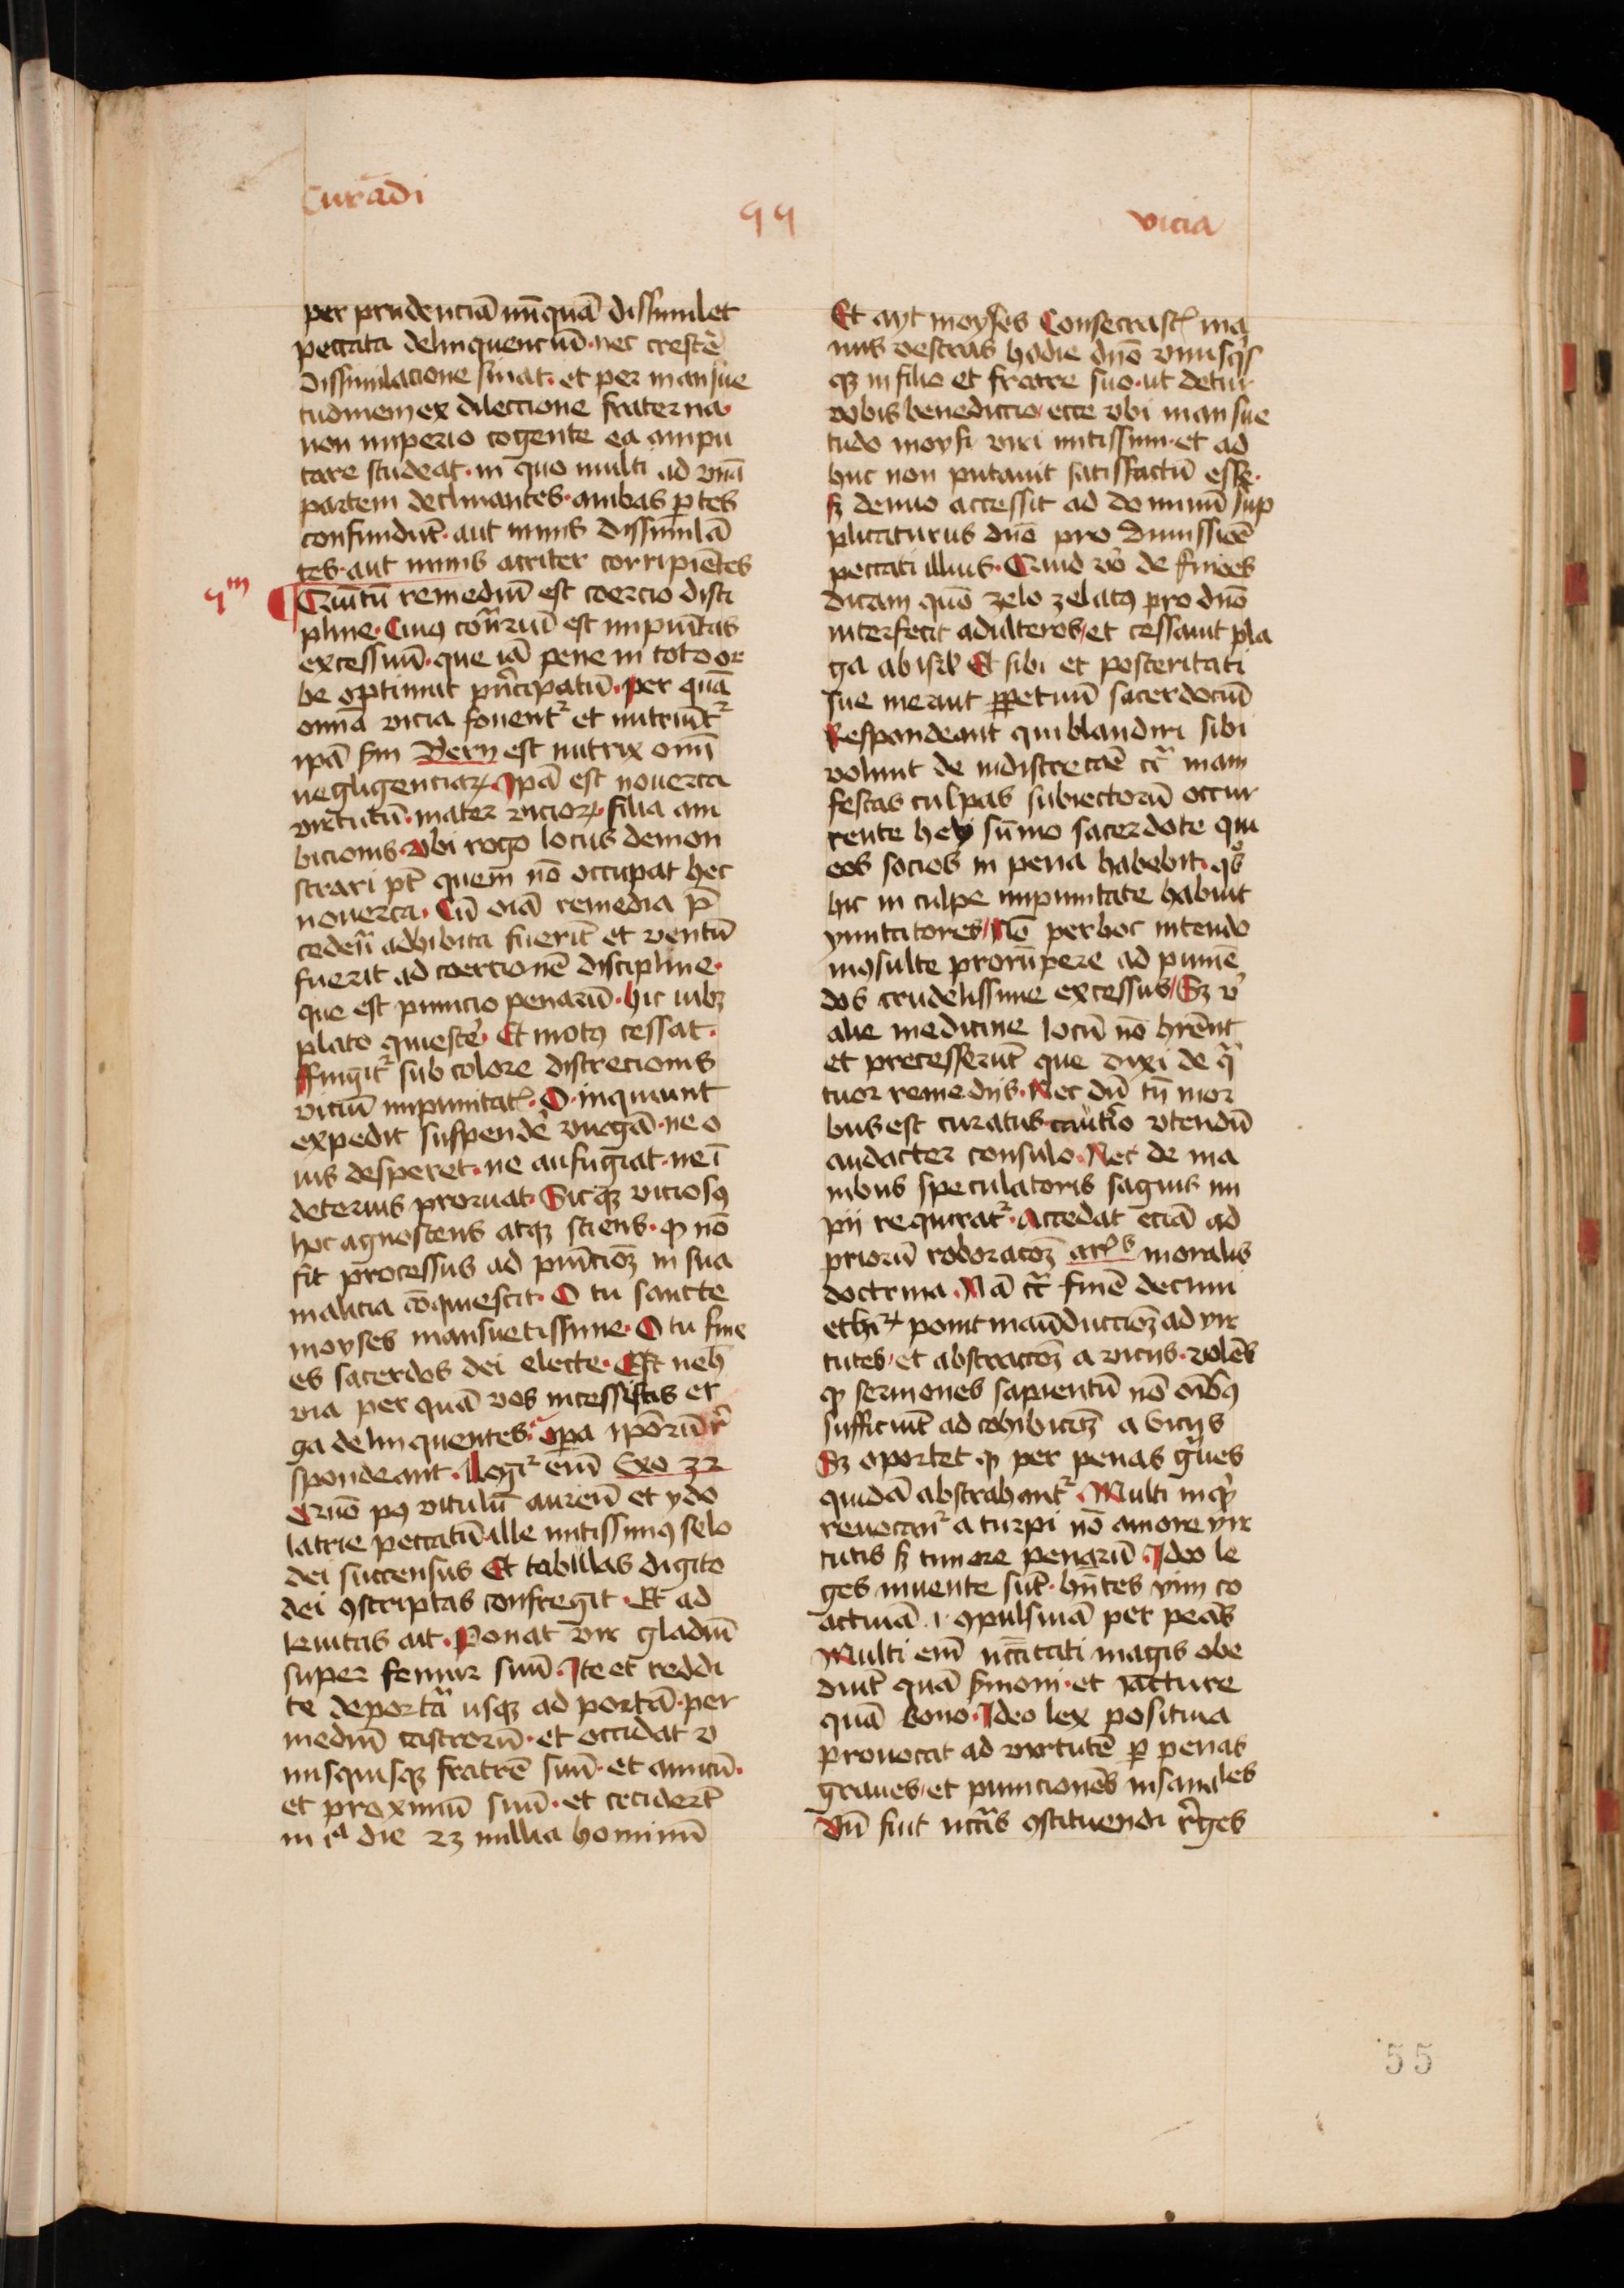 Curādi
99
vicia
per prudenciā nūquā dissimulet
peccata delinquenciū · nec crescē
dissimulacione sinat · et per mansue
tudinem ex dileccione fraterna ·
non imperio cogente ea ampu
tare studeat · in quo multi ad vnā
partem declinantes · ambas ptes
confundūt · aut nimis dissimulā
tes · aut nimis acriter corripiētes
qm
¶ Quītū remediū est coercio disci
pline · Cuiꝯ cōrariū est impunitas
excessuū · que iā pene in toto or
be optimut pncipatū · per quā
omīa vicia fouentr et nutriūtr
ipā scdm Bern est nutrix omī
negligenciaꝝ · Ipā est nouerca
virtutū · mater vicioꝝ · filia am
bicionis · vbi rogo locus demon
strari pt quem nō occupat hec
nouerca · Cū oīa remedia p̄
cedeñ adhibita fuerīt et ventū
fuerit ad coercionē discipline ·
que est punicio penarū · hic iubꝫ
plato quiescē · Et motꝯ cessat ·
ffingitr sub colore discrecionis
viciū impunitat · O inquiunt
expedit suspendē virgā · ne o
uis desperet · ne aufugiat · ne ī
deterius proruat · Sicqꝫ viciosꝯ
hoc agnoscens atqꝫ sciens · ꝙ nō
fit processus ad punicioēꝫ in sua
malicia cōquiescit · O tu sancte
moyses mansuetissime · O tu fine
es sacerdos dei electe · Est nēh
via per quā vos incessistis er
ga delinquentes · opa ipōrū r
spondeant · Legir enī Exo 32
Quō pꝯ vitulū aureū et ydo
latrie peccatū · ille mitissimꝯ selo
dei succensus Et tabulas digito
dei ꝯscriptas confregit · Et ad
leuitas ait · Ponat vir gladiū
super femur suū · Ite et reddi
te de porta usqꝫ ad portā · per
mediū castrorū · et occidat v
nusquisqꝫ fratrē suū · et amicū ·
et proximū suū · et cecidert
in ea die 23 millia hominū
Et ayt moyses Consecrast ma
nus vestras hodie dnō vnusqs
qꝫ in filio et fratre suo · ut detur
vobis benedictio / ecce vbi mansue
tudo moysi viri mitissimi · et ad
huc non putauit satisfactū esse ·
sꝫ denuo accessit ad dominū sup
plicaturus dnō pro dimissiōe
peccati illius · Quid vo de finees
dicam quō zelo zelatꝯ pro dnō
interfecit adulteros / et cessauit pla
ga ab isrl Et sibi et posteritati
sue meruit ppetuū sacerdociū
Respondeant qui blandiri sibi
volunt de indiscrecōe cr mani
festas culpas subiectorū occur
rente hely sūmo sacerdote qui
eos socios in pena habebit · qs
hic in culpe impunitate habuit
ymitatores / Nō per hoc intendo
inꝯsulte prorūpere ad puniē
dos crudelissime excessus / Sꝫ v
alie medicine locū nō hrent
et precesserūt que dixi de q
tuor remedijs · Nec dū tn mor
bus est curatus cautio vtendū
audacter consulo · Nec de ma
nibus speculatoris saguis im
pii requiratr · Accedat eciā ad
priorū roboracōeꝫ ars moralis
doctrina · Nā cr finē decimi
ethiꝝ ponit manuduccioēꝫ ad vir
tutes / et abstraccōeꝫ a vicijs · volēs
ꝙ sermones sapientū nō oībꝯ
sufficiūt ad cohibicōeꝫ a vicijs
Sꝫ oportet ꝙ per penas gues
quidā abstrahantr · Multi inqt
reuocantr a turpi nō amore vir
tutis sꝫ timore penarū · Ideo le
ges inuente sūt · hntes vim co
actiuā · i · ꝯpulsiuā per penas
Multi enī nccitati magis obe
diūt quā smoni · et iacture
quā bono · Ideo lex positiua
prouocat ad virtutē p penas
graues / et puniciones insanales
Vn fuit nccris ꝯstituendi rges
55